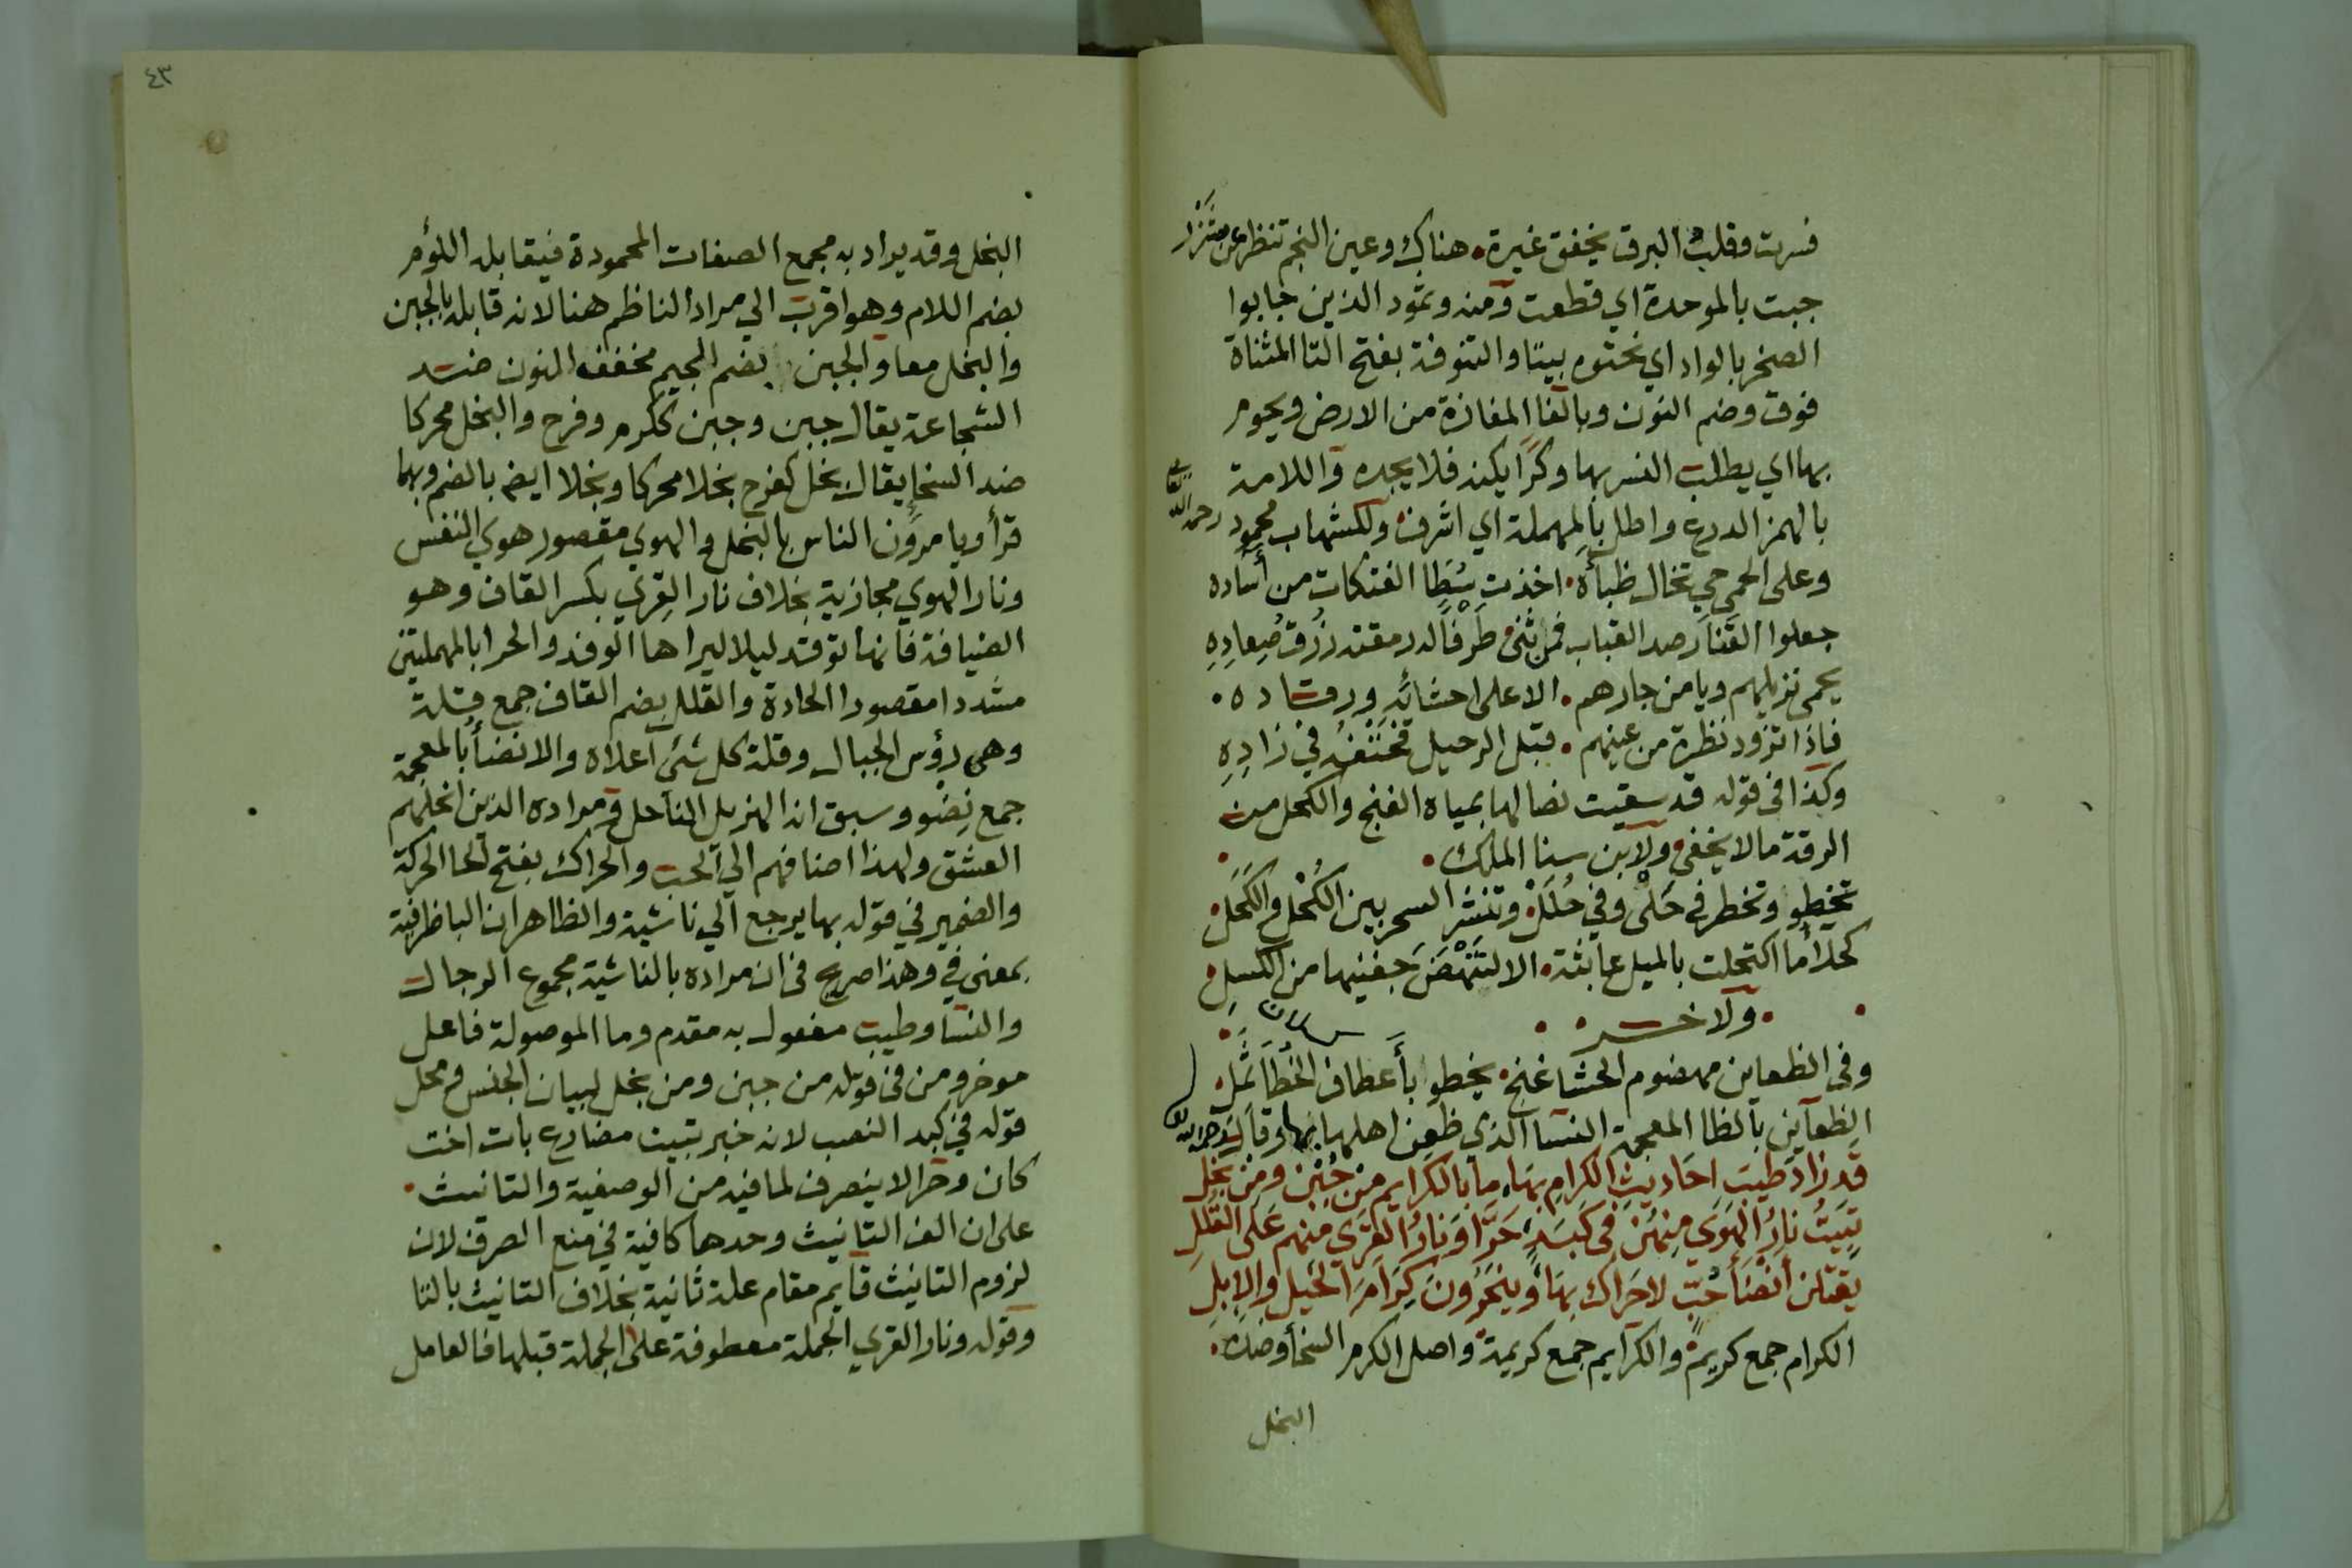 فسرت وقلب البرق يخفق غيرة هناك وعين النجم تنظر عن شزر
جبت بالموحدة اي قطعت ومنه وثمود الذين جابوا
الصخر بالواد اي نحتوه بيتا والتنوفة بفتح التا المثناة
فوق وضم النون وبالفا المفازة من الارض ويحوم
بها اي يطلب النسر بها وكرا يكنه فلا يجده واللامة
بالهمز الدرع واطل بالمهملة اي اشرف وللشهاب محمود رحمه الله تعالى
وعلى الحمى حي تخال ظباه اخذت سُطا الفتكات من آساده
جعلوا القنا رصد القباب فمن ثنى طرفا لدر مقته زرق صعاده
يحمى نزيلهم ويامن جارهم الا على احشائه ورقاده
فاذا تزود نظرة من عينهم قبل الرحيل فحتفه في زاده
وكذا فى قوله قد سقيت نصالها بمياه الغنج والكحل من
الرقة ما لا يخفى ولابن سنا الملك
تخطو وتخطر في حَلْى وفي حُلَل وتنشر السحر بين الكُحْل والكَحَل
كحلا ما اكتحلت بالميل عابثة الا لتَنْهَضَ جفنيها من الكسل
ولاخر
وفى الظعاين مهضوم الحشا غنج يخطو بأعطاف الخُطا ثَمِل
الظعاين بالظا المعجمة النسا الذي ظعن اهلها بها وقال رحمه الله
قد زاد طيبَ احاديثِ الكرامِ بهَا ما بالكرايم من جُبْن ومن بخل
تبيتُ نارُ الهَوَى منهن فى كبدٍ حَرّا ونارُ القِرَى منهم على القُلل
يقتلن أنضاَ حُبٍّ لا حَراك بهَا وينحرون كِرَامَ الخيل والإبلِ
الكرام جمع كريم والكرايم جمع كريمة واصل الكرم السخا وضده
البخل
٤٣
البخل وقد يراد به مجمع الصفات المحمودة فيقابله اللؤم
بضم اللام وهو اقرب الي مراد الناظم هنا لانه قابله بالجبن
والبخل معا والجبن بضم الجيم مخفف النون ضد
الشجاعة يقال جبن وجبن ككرم وفرح والبخل محركا
ضد السخا يقال بخل كفرح بخلا محركا وبخلا ايضم بالضم وبهما
قرأ ويامرون الناس بالبخل والهوي مقصور هوي النفس
ونار الهوي مجازية بخلاف نار القري بكسر القاف وهو
الضيافة فانها توقد ليلا ليراها الوفد والحرا بالمهملتين
مشددا مقصورا الحادة والقلل بضم القاف جمع قلة
وهى رؤس الجبال وقلة كل شئ اعلاه والانضا بالمعجمة
جمع نِضْو وسبق انه الهزيل الناحل ومراده الذين انحلهم
العشق ولهذا اضافهم الي الحب والحراك بفتح الحا الحركة
والضمير في قوله بها يرجع الي ناشئة والظاهر ان البا ظرفية
بمعنى في وهذا صريح فى ان مراده بالناشية مجموع الرجال
والنسا وطيب مفعول به مقدم وما الموصولة فاعل
موخر ومن فى قوله من جبن ومن بخل لبيان الجنس ومحل
قوله في كبد النصب لانه خبر تبيت مضارع بات اخت
كان وحرا لا ينصرف لما فيه من الوصفية والتانيث
على ان الف التانيث وحدها كافية في منع الصرف لان
لزوم التانيث قايم مقام علة ثانية بخلاف التانيث بالتا
وقوله ونار القري الجملة معطوفة على الجملة قبلها فالعامل